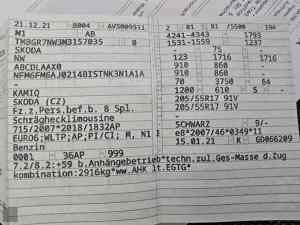 21.12.21 8004 AVS009511 2 01 81 /5506 194
M1 AB 4241-4343 1793
TMBGR7NW3M3157035 0 1531-1559 1237
SKODA - 75 -
NW 123 1716 1716
ABCDLAAX0 910 860 -
NFM6FM6AJ0214BISTNK3N1A1A 910 860 -
- 70 3750 84
KAMIQ 1200 610 5 -
SKODA (CZ) 205/55R17 91V
Fz.z.Pers.bef.b. 8 Spl. 205/55R17 91V
Schräghecklimousine -
715/2007*2018/1832AP SCHWARZ 9/-
EURO6;WLTP;AP;PI/CI; M, N1 I e8*2007/46*0349*11
Benzin 15.01.21 K GD066209
0001 36AP 999
7.2/8.2:+59 b.Anhängebetrieb*techn.zul.Ges-Masse d.Zug
kombination:2916kg*ww.AHK lt.EGTG*